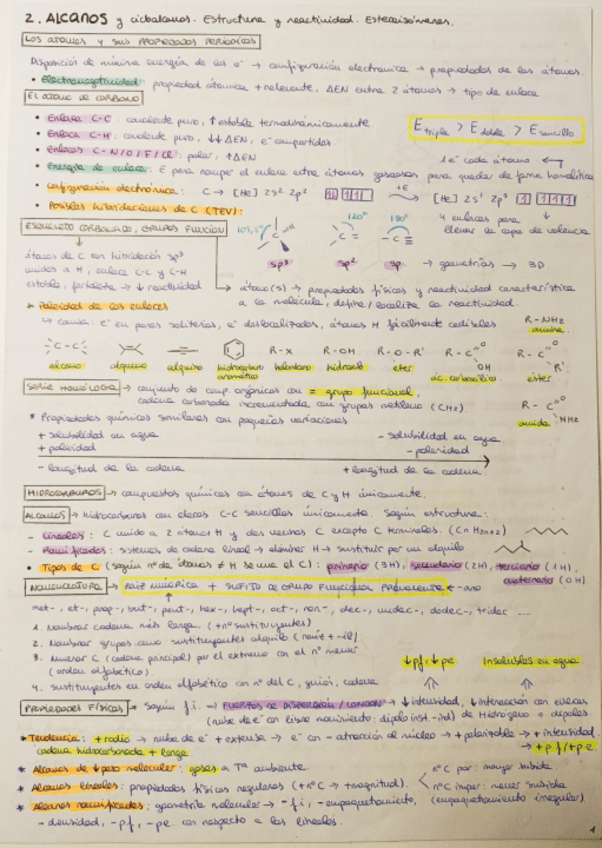 2. ALCANOS y cicloalcanos. Estructura y reactividad. Estereoisómeros.
LOS ÁTOMOS Y SUS PROPIEDADES PERIÓDICAS
Disposición de mínima energía de los e⁻ → configuración electrónica → propiedades de los átomos.
• Electronegatividad: propiedad atómica + relevante, ΔEN entre 2 átomos → tipo de enlace
EL ÁTOMO DE CARBONO
• Enlace C-C: covalente puro, ↑ estable termodinámicamente
• Enlace C-H: covalente puro, ↓↓ ΔEN, e⁻ compartidos.
E triple > E doble > E sencillo
• Enlaces C-N/O/F/Cl: polar, ↑ΔEN
1e⁻ cada átomo
• Energía de enlace: E para romper el enlace entre átomos gaseosos para quedar de forma homolítica
• Configuración electrónica: C → [He] 2s² 2p² +E → [He] 2s¹ 2p³
• Posibles hibridaciones de C (TEV):
4 enlaces para llenar la capa de valencia
ESQUELETO CARBONADO, GRUPOS FUNCIÓN
109,5° 120° 180°
sp³ sp² sp → geometrías → 3D
átomos de C con hibridación sp³
unidos a H, enlace C-C y C-H
estable, fortaleza → ↓ reactividad
átomo(s) → propiedades físicas y reactividad característica
a la molécula, define/localiza la reactividad.
* Polaridad de los enlaces
↳ causa: e⁻ en pares solitarios, e⁻ deslocalizados, átomos H fácilmente cedibles
R-NH₂
amina
-C-C- R-X R-OH R-O-R' R-C=O OH R-C=O R'
alcano alqueno alquino hidrocarburo aromático haloalcano hidroxilo éter ác. carboxílico éster
SERIE HOMÓLOGA → conjunto de comp. orgánicos con = grupo funcional,
cadena carbonada incrementada con grupos metileno (CH₂)
R-C=O NH₂
amida
* Propiedades químicas similares con pequeñas variaciones
+ solubilidad en agua - solubilidad en agua
+ polaridad - polaridad
- longitud de la cadena + longitud de la cadena
HIDROCARBUROS → compuestos químicos con átomos de C y H únicamente.
ALCANOS → hidrocarburos con enlaces C-C sencillos únicamente. Según estructura:
- Lineales: C unido a 2 átomos H y dos vecinos C excepto C terminales. (CnH2n+2)
- Ramificados: sistemas de cadena lineal → eliminar H → sustituir por un alquilo
• Tipos de C (según nº de átomos ≠ H se une el C): primario (3H), secundario (2H), terciario (1H),
cuaternario (0H)
NOMENCLATURA → RAÍZ NUMÉRICA + SUFIJO DE GRUPO FUNCIONAL PREVALENTE ← -ano
met-, et-, prop-, but-, pent-, hex-, hept-, oct-, non-, dec-, undec-, dodec-, tridec ...
1. Nombrar cadena más larga (+nº sustituyentes)
2. Nombrar grupos como sustituyentes alquilo (raíz + -il)
3. Numerar C (cadena principal) por el extremo con el nº menor
(orden alfabético)
↓pf, ↓pe Insolubles en agua
4. Sustituyentes en orden alfabético con nº del C, guión, cadena
PROPIEDADES FÍSICAS → Según f.i. → FUERZAS DE DISPERSIÓN / LONDON → ↓ intensidad, ↓ interacción con enlaces
(nube de e⁻ con libre movimiento: dipolo inst-ind) de Hidrógeno o dipolos.
* Tendencia: + radio → nube de e⁻ + extensa → e⁻ con - atracción al núcleo → + polarizable → + intensidad
cadena hidrocarbonada + larga → +pf/+p.e.
* Alcanos de ↓ peso molecular: gases a Tª ambiente.
* Alcanos lineales: propiedades físicas regulares (+nº C → +magnitud).
nº C par: mayor subida
nº C impar: menor subida
(empaquetamiento irregular)
* Alcanos ramificados: geometría molecular → - f.i., - empaquetamiento,
- densidad, -pf, -pe. con respecto a los lineales.
1